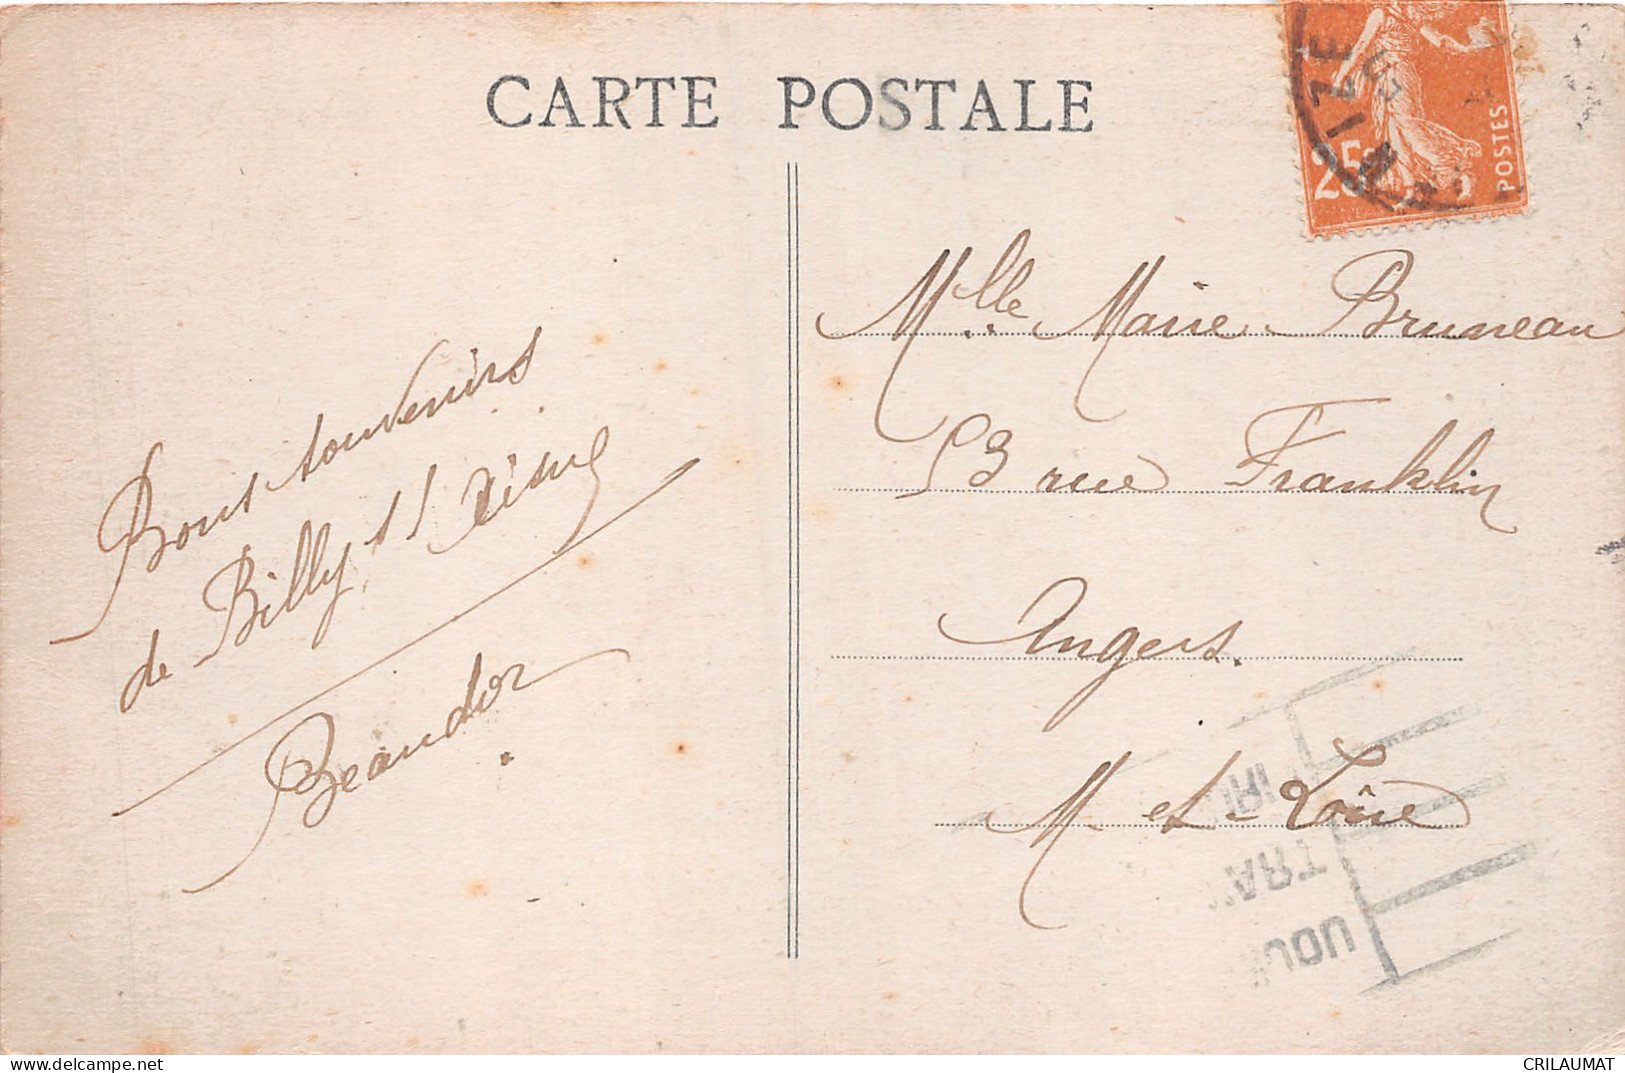 CARTE POSTALE
25c
POSTES
IZE
Bons souvenirs
de Billy s/ Aisne
Beaudor
Mlle Marie Bruneau
53 rue Franklin
Angers.
M et Loire
delcampe.net
CRILAUMAT